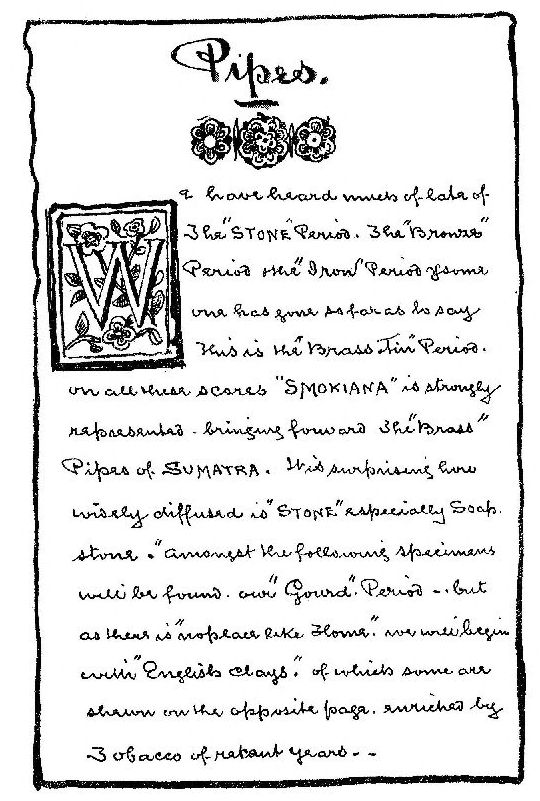 Pipes.
We have heard much of late of
The "STONE" Period. The "Bronze"
Period & the "Iron" Period & some
one has gone so far as to say
This is the "Brass & Tin" Period.
on all these scores "SMOKIANA" is strongly
represented - bringing forward The "Brass"
Pipes of SUMATRA. It is surprising how
widely diffused is "STONE" especially Soap.
stone. "Amongst the following specimens
will be found. our "Gourd". Period -. but
as there is "no place like Home". we will begin
with "English Clays". of which some are
shewn on the opposite page. enriched by
Tobacco of recent years - -